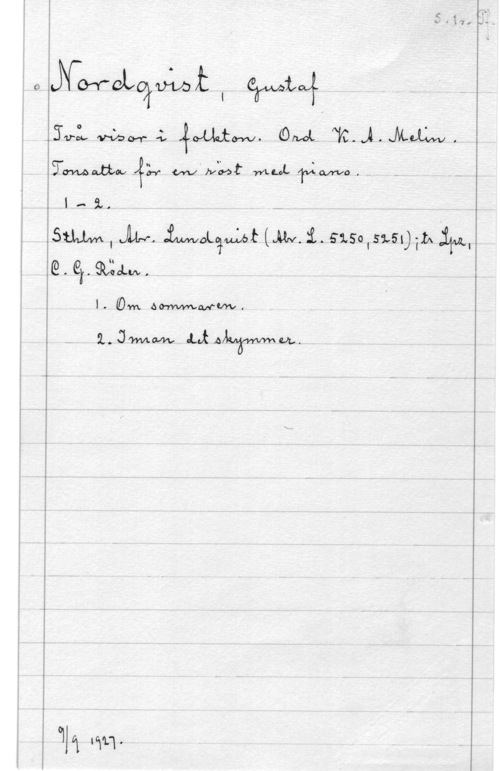 S. 1 r. Pf.
Nordqvist, Gustaf
Två visor i folkton. Ord K. A. Melin.
Tonsatta för en röst med piano.
1 - 2.
Sthlm, Abr. Lundquist (Abr. L. 5250, 5251); tr. Lpz,
C. G. Röder.
1. Om sommaren.
2. Innan det skymmer.
9/9 1927.